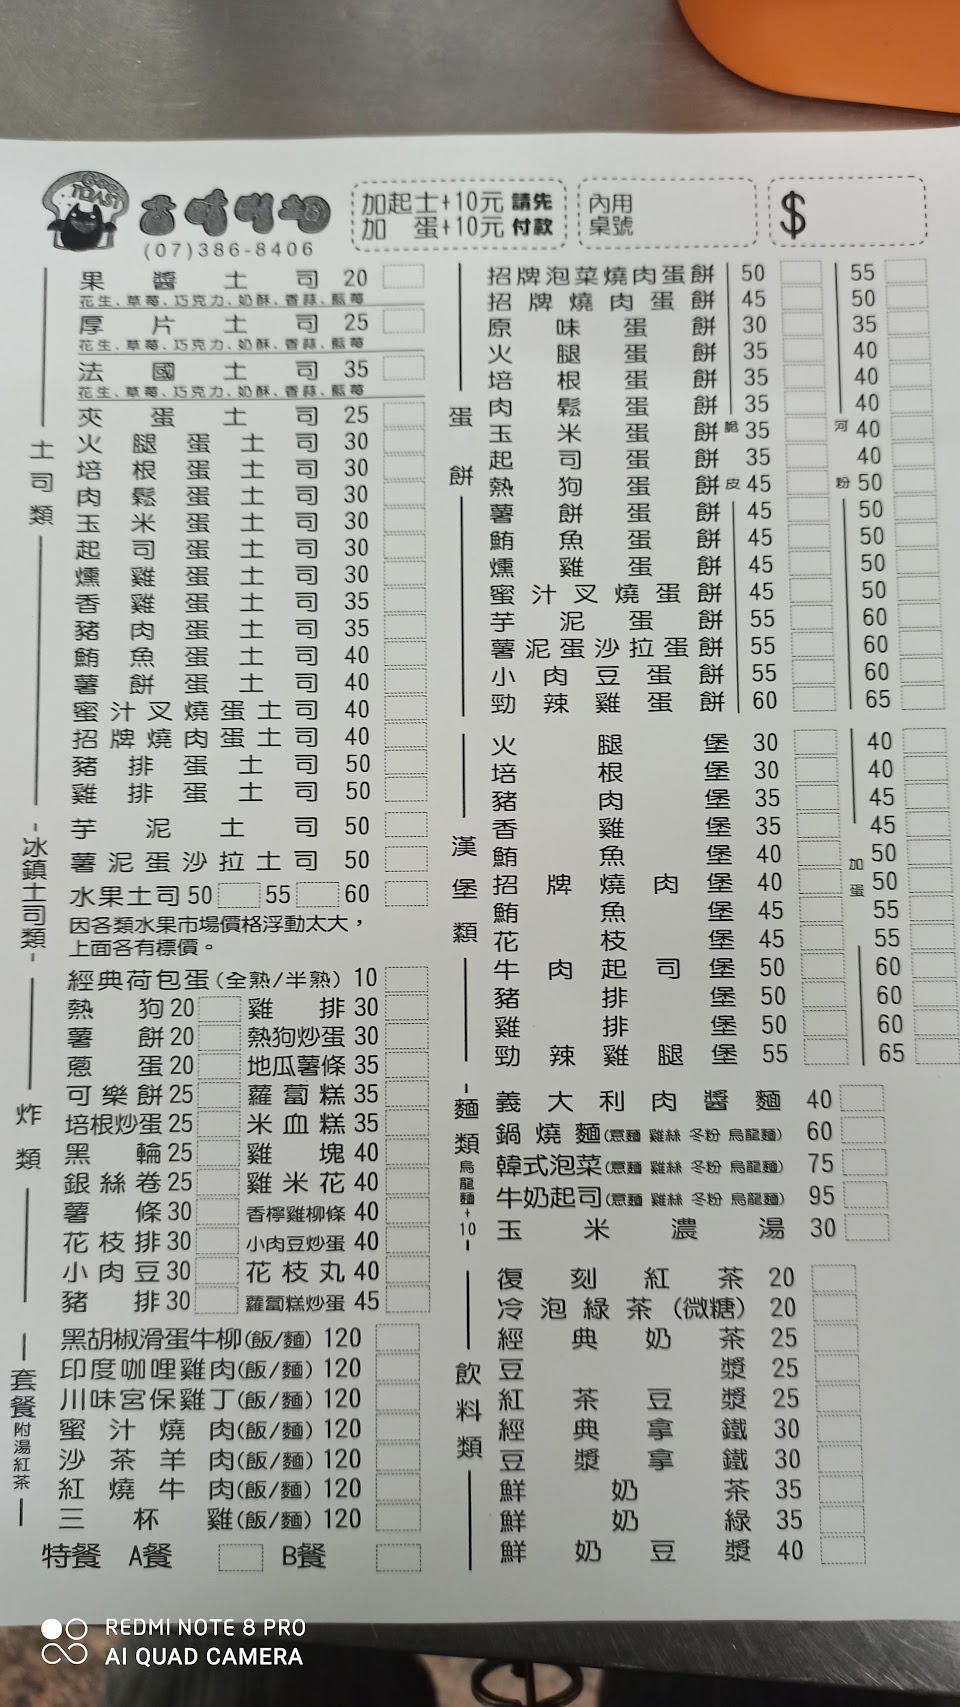 GOOD TOAST
(07)386-8406
加起士+10元 請先
加 蛋+10元 付款
內用
桌號
$
土司類
果醬土司 20
花生、草莓、巧克力、奶酥、香蒜、藍莓
厚片土司 25
花生、草莓、巧克力、奶酥、香蒜、藍莓
法國土司 35
花生、草莓、巧克力、奶酥、香蒜、藍莓
夾蛋土司 25
火腿蛋土司 30
培根蛋土司 30
肉鬆蛋土司 30
玉米蛋土司 30
起司蛋土司 30
燻雞蛋土司 30
香雞蛋土司 35
豬肉蛋土司 35
鮪魚蛋土司 40
薯餅蛋土司 40
蜜汁叉燒蛋土司 40
招牌燒肉蛋土司 40
豬排蛋土司 50
雞排蛋土司 50
-冰鎮土司類-
芋泥土司 50
薯泥蛋沙拉土司 50
水果土司 50 55 60
因各類水果市場價格浮動太大，
上面各有標價。
炸類
經典荷包蛋(全熟/半熟) 10
熱狗 20 雞排 30
薯餅 20 熱狗炒蛋 30
蔥蛋 20 地瓜薯條 35
可樂餅 25 蘿蔔糕 35
培根炒蛋 25 米血糕 35
黑輪 25 雞塊 40
銀絲卷 25 雞米花 40
薯條 30 香檸雞柳條 40
花枝排 30 小肉豆炒蛋 40
小肉豆 30 花枝丸 40
豬排 30 蘿蔔糕炒蛋 45
套餐附湯紅茶
黑胡椒滑蛋牛柳(飯/麵) 120
印度咖哩雞肉(飯/麵) 120
川味宮保雞丁(飯/麵) 120
蜜汁燒肉(飯/麵) 120
沙茶羊肉(飯/麵) 120
紅燒牛肉(飯/麵) 120
三杯雞(飯/麵) 120
特餐 A餐 B餐
蛋餅
脆皮 河粉
招牌泡菜燒肉蛋餅 50 55
招牌燒肉蛋餅 45 50
原味蛋餅 30 35
火腿蛋餅 35 40
培根蛋餅 35 40
肉鬆蛋餅 35 40
玉米蛋餅 35 40
起司蛋餅 35 40
熱狗蛋餅 45 50
薯餅蛋餅 45 50
鮪魚蛋餅 45 50
燻雞蛋餅 45 50
蜜汁叉燒蛋餅 45 50
芋泥蛋餅 55 60
薯泥蛋沙拉蛋餅 55 60
小肉豆蛋餅 55 60
勁辣雞蛋餅 60 65
漢堡類
加蛋
火腿堡 30 40
培根堡 30 40
豬肉堡 35 45
香雞堡 35 45
鮪魚堡 40 50
招牌燒肉堡 40 50
鮪魚堡 45 55
花枝堡 45 55
牛肉起司堡 50 60
豬排堡 50 60
雞排堡 50 60
勁辣雞腿堡 55 65
-麵類烏龍麵+10-
義大利肉醬麵 40
鍋燒麵(意麵 雞絲 冬粉 烏龍麵) 60
韓式泡菜(意麵 雞絲 冬粉 烏龍麵) 75
牛奶起司(意麵 雞絲 冬粉 烏龍麵) 95
玉米濃湯 30
飲料類
復刻紅茶 20
冷泡綠茶(微糖) 20
經典奶茶 25
豆漿 25
紅茶豆漿 25
經典拿鐵 30
豆漿拿鐵 30
鮮奶茶 35
鮮奶綠 35
鮮奶豆漿 40
REDMI NOTE 8 PRO
AI QUAD CAMERA